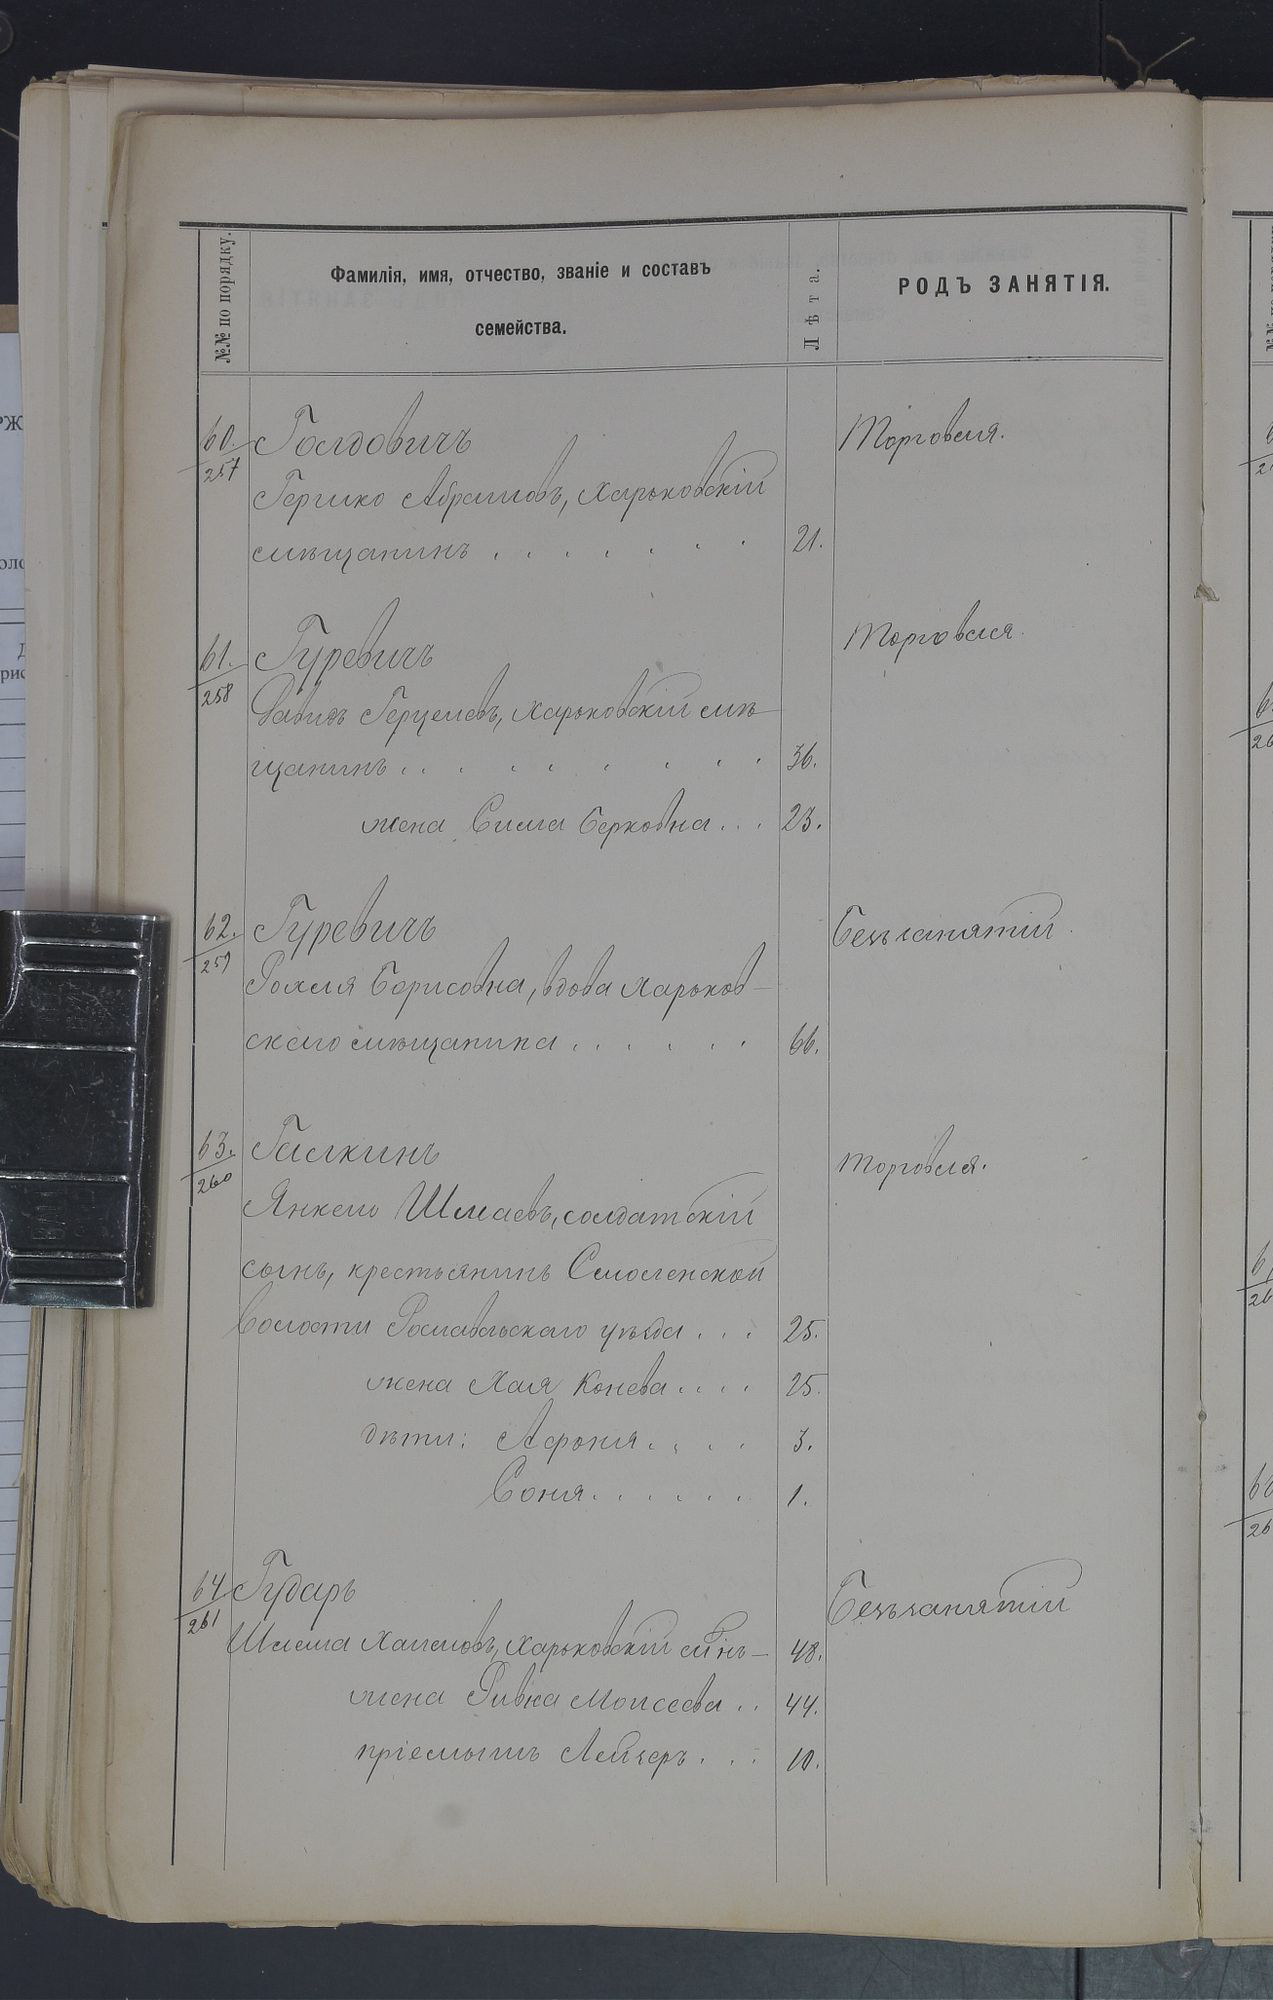 №№ по порядку.
Фамилія, имя, отчество, званіе и составъ
семейства.
Лѣта.
РОДЪ ЗАНЯТІЯ.
60.
257
Голдовичъ
Торговля.
Гершко Абрамовъ, Харьковскій
мѣщанинъ . . . . . . . 21.
61.
258
Гуревичъ
Торговля.
Давидъ Герцелевъ, Харьковскій мѣ-
щанинъ . . . . . . . . . 36.
жена Сима Берковна . . . 23.
62.
259
Гуревичъ
Безъ занятій.
Рохля Борисовна, вдова Харьков-
скаго мѣщанина . . . . . . 66.
63.
260
Галкинъ
Торговля.
Янкель Шмаевъ, солдатскій
сынъ, крестьянинъ Смоленской
волости Рославльскаго уѣзда . . . 25.
жена Хая Конева . . . . 25.
дѣти: Афроня . . . . 3.
Соня . . . . . . 1.
64
261
Гударь
Безъ занятій
Шлема Хаимовъ, Харьковскій мѣщ- 48.
жена Ривка Моисеева . . 44.
пріемышъ Лейзеръ . . . 10.